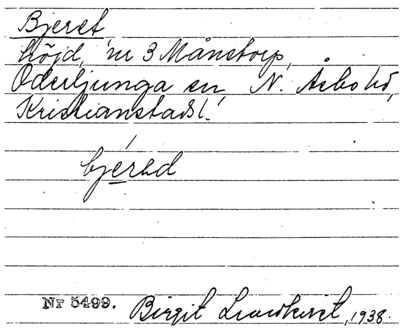 Bjeret
höjd, nr 3 Månstorp,
Oderljunga sn N. Åsbo hd,
Kristianstads l.
bjéred
Nr 5499. Birgit Lundkvist, 1938.